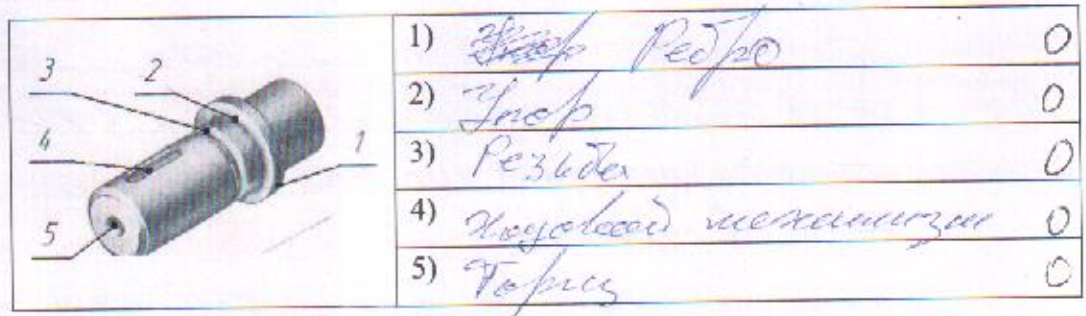 3 2
4 1
5
1) Упор Ребро 0
2) Упор 0
3) Резьба 0
4) ходовой механизм 0
5) Торец 0